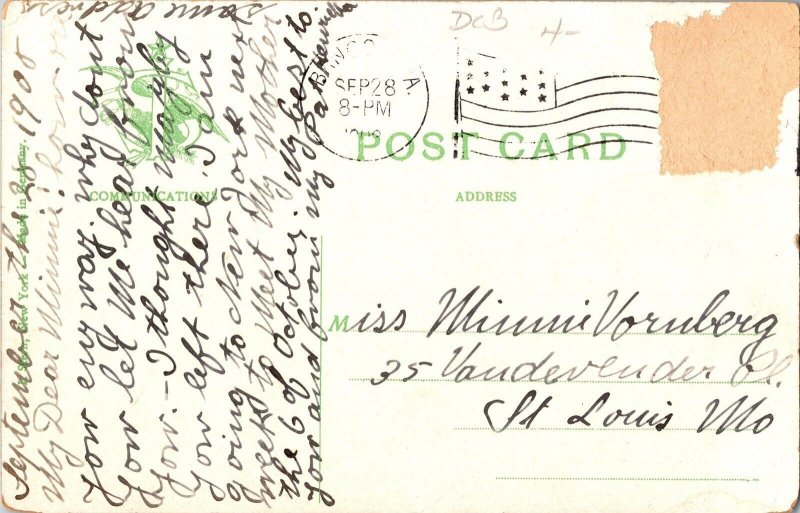 same address
September the 28 1908
My Dear Minnie! how
You enyway, why dont
You let Me hear from
You. - I thought maybey
You left there. I am
going to New York next
week to Meet My Mother
the 6 of October. My best to
You and from my Pa
Henrietta
COMMUNICATIONS
New York - Made in Germany.
DCB
4-
SEP 28
8-PM
1908
POST CARD
ADDRESS
Miss Minnie Vornberg
35 Vandevender Pl.
St Louis Mo